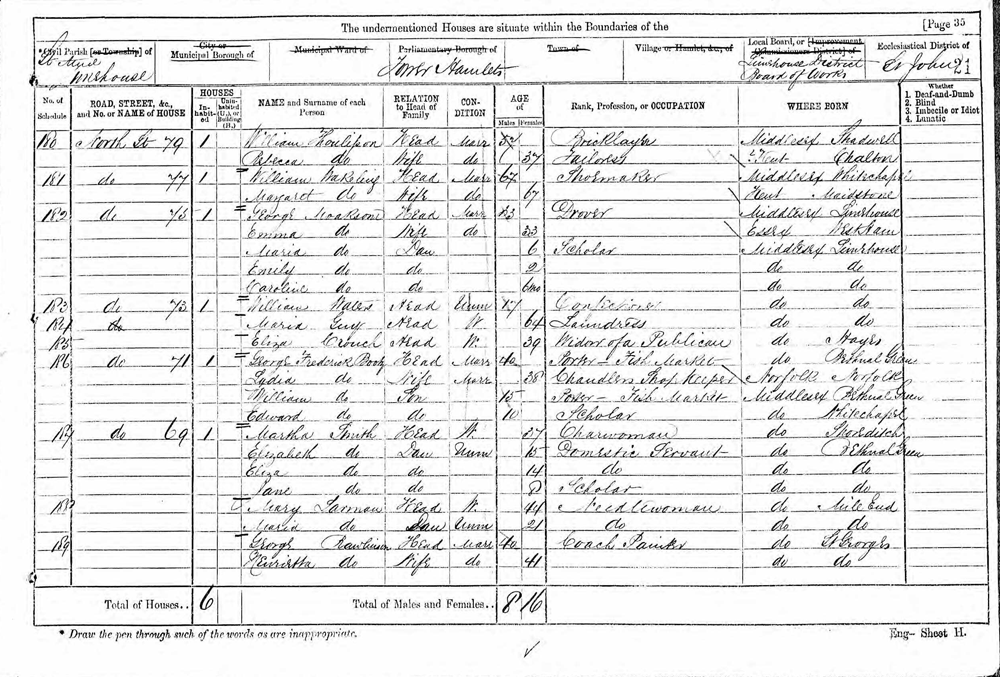 The undermentioned Houses are situate within the Boundaries of the
[Page 35
Civil Parish [or Township] of
City or Municipal Borough of
Municipal Ward of
Parliamentary Borough of
Town of
Village or Hamlet, &c., of
Local Board, or [Improvement Commissioners District] of
Ecclesiastical District of
Limehouse
Tower Hamlets
Limehouse District Board of Works
St John 21
No. of Schedule
ROAD, STREET, &c., and No. or NAME of HOUSE
HOUSES
Inhabited
Uninhabited (U.), or Building (B.)
NAME and Surname of each Person
RELATION to Head of Family
CONDITION
AGE of
Males
Females
Rank, Profession, or OCCUPATION
WHERE BORN
Whether
1. Deaf-and-Dumb
2. Blind
3. Imbecile or Idiot
4. Lunatic
180 North St 79 1 William Head Marr Bricklayer Middlesex Shadwell
Rebecca do Wife do 37 Tailoress Kent Chalton
181 do 77 1 William Wakeling Head Marr 67 Shoemaker Middlesex Whitechapel
Margaret do Wife do 67 Kent Maidstone
182 do 75 1 George Head Marr 33 Drover Middlesex Limehouse
Emma do Wife do 33 Essex West Ham
Maria do Dau 6 Scholar Middlesex Limehouse
Emily do do 2 do do
Caroline do do 6mo do do
183 do 73 1 William Wales Head Unm 47 do do
184 do Maria Guy Head W. 64 Laundress do do
185 Eliza Crouch Head W. 39 Widow of a Publican do Hayes
186 do 71 1 George Frederick Booty Head Marr 40 Porter - Fish Market do Bethnal Green
Lydia do Wife Marr 38 Chandlers Shop Keeper Norfolk Norfolk
William do Son 15 Porter - Fish Market Middlesex Bethnal Green
Edward do do 10 Scholar do Whitechapel
187 do 69 1 Martha Smith Head W. 37 Charwoman do Shoreditch
Elizabeth do Dau Unm 15 Domestic Servant do Bethnal Green
Eliza do do 14 do do do
Jane do do 8 Scholar do do
188 Mary Larman Head W. 44 Needlewoman do Mile End
Maria do Dau Unm 21 do do do
189 George Rawlinson Head Marr 40 Coach Painter do St Georges
Henrietta do Wife do 41 do do
Total of Houses.. 6
Total of Males and Females.. 8 16
* Draw the pen through such of the words as are inappropriate.
Eng- Sheet H.